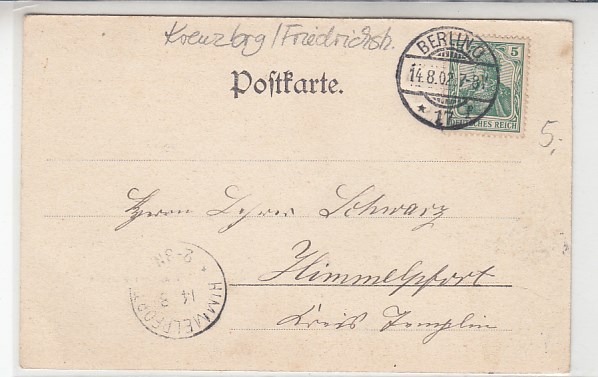 Kreuzbrg/Friedrichsh.
BERLIN
14.8.02. 7-8V.
* 17
5
DEUTSCHES REICH
Postkarte.
5,-
Herrn Lehrer Schwarz
Himmelpfort
Kreis Templin
HIMMELPFORT
14 8
2-3N